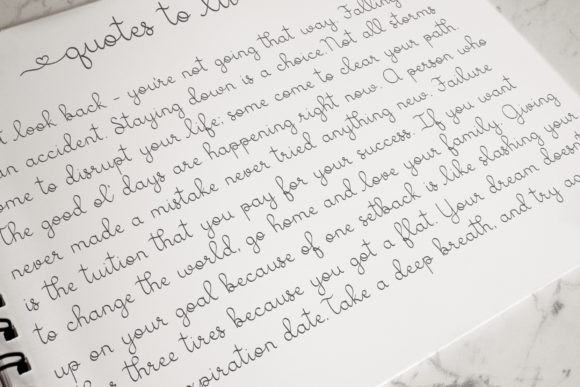 quotes to
look back - you're not going that way. Falling
an accident. Staying down is a choice.Not all storms
to disrupt your life; some come to clear your path.
The good ol' days are happening right now. A person who
never made a mistake never tried anything new. Failure
is the tuition that you pay for your success. If you want
to change the world, go home and love your family. Giving
up on your goal because of one setback is like slashing your
three tires because you got a flat. Your dream doesn
date.Take a deep breath, and try